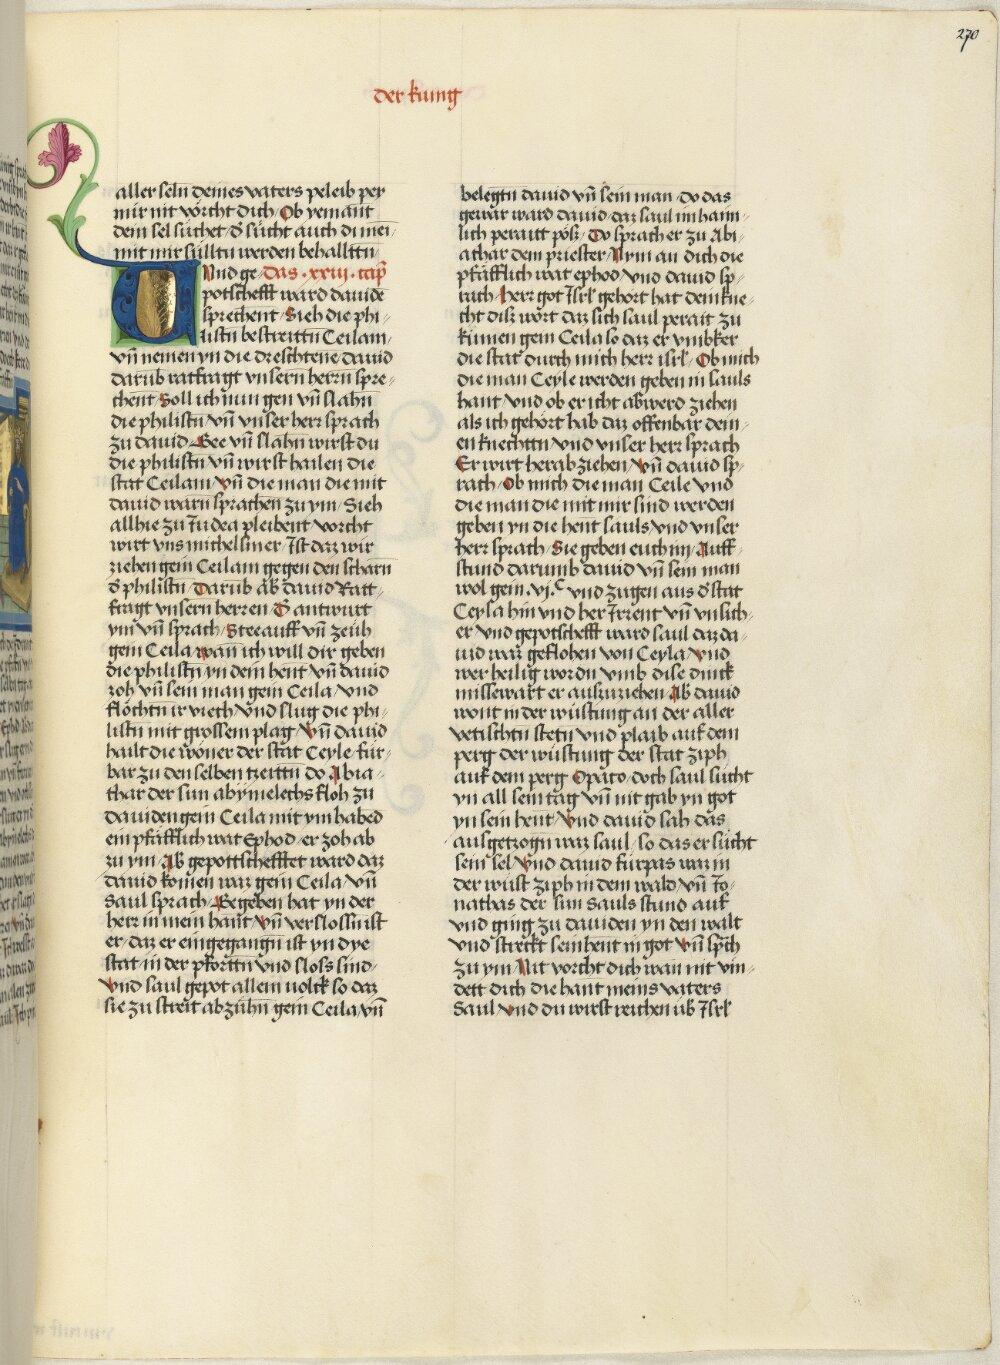 270
der kunig
aller seln deines vaters peleib per
mir nit vörcht dich Ob yemant
dein sel suchet d' sucht auch di mei-
mit mir sulltu werden behallttn
Vnd ge- das .xxiij. cap
potschefft ward dauide
sprechent Sieh die phi-
listn bestreittn Ceilam
vn̄ nemen yn die dreschtene dauid
darūb ratfragt vnsern herrn spre-
chent Soll ich nun gen vn̄ slahn
die philistn vn̄ vnser herr sprach
zu dauid Gee vn̄ slahn wirst du
die philistn vn̄ wirst hailen die
stat Ceilam vn̄ die man die mit
dauid warn sprachen zu ym Sieh
allhie zu Judea pleibent vorcht
wirt vns michellsmer Ist daz wir
ziehen gein Ceilam gegen den scharn
d' philistn Darūb ab dauid Ratt-
fragt vnsern herren D' antwurt
ym vn̄ sprach Steeauff vn̄ zeüh
gein Ceila wan ich will dir geben
die philistn yn dein hent vn̄ dauid
zoh vn̄ sein man gein Ceila vnd
flöchtn ir viech vnd slug die phi-
listn mit grossem plag Vn̄ dauid
hailt die wöner der stat Ceyle fur-
bar zu den selben zeittn do Abia-
thar der sun abymelechs floh zu
dauiden gein Ceila mit ym habed
ein pfäfflich wat Ephod er zoh ab
zu ym Ab gepottschefftet ward daz
dauid komen waz gein Ceila vn̄
Saul sprach Gegeben hat yn der
herr in mein hant Vn̄ verslossn ist
er daz er eingegangn ist yn dye
stat in der pforttn vnd sloss sind
Vnd saul gepot allem uolck so daz
sie zu streit abzuhn gein Ceila vn̄
belegtn dauid vn̄ sein man do das
gewar ward dauid daz saul im haim-
lich peraitt pösz Do sprach er zu Abi-
athar dem priester Nym an dich die
pfäfflich wat ephod vnd dauid sp-
rach herr got Isrl' gehört hat dein kne-
cht disz wort daz sich saul perait zu
kumen gein Ceila so daz er vmbker
die stat durch mich herr isrl' Ob mich
die man Ceyle werden geben in sauls
hant vnd ob er icht abwerd ziehen
als ich gehört hab daz offenbar dein-
en knechttn vnd vnser herr sprach
Er wirt herab ziehen Vn̄ dauid sp-
rach Ob mich die man Ceile vnd
die man die mit mir sind werden
geben yn die hent sauls vnd vnser
herr sprach Sie geben euch in Auff-
stund darumb dauid vn̄ sein man
wol gein .vj.c vnd zugen aus d' stat
Ceyla hin vnd her Irrent vn̄ vnsich-
er vnd gepotschefft ward saul daz da-
uid waz geflohen von Ceyla vnd
wer heilig wordn vmb dise dinck
missewart er auszuziehen Ab dauid
wont in der wüstung an der aller
vetischtn stetn vnd plaib auf dem
perg der wüstung der stat ziph
auf dem perg Opato doch saul sucht
yn all sein tag vn̄ nit gab yn got
yn sein hent Vnd dauid sah das
ausgezogn waz saul so das er sucht
sein sel Vnd dauid furpas waz in
der wüst ziph in dem wald vn̄ Jo-
nathas der sun Sauls stund auf
vnd ging zu dauiden yn den walt
vnd streckt sein hent in got Vn̄ sp̄ch
zu ym Nit vorcht dich wan nit vin-
dett dich die hant meins vaters
Saul vnd du wirst reichen üb' Isrl'